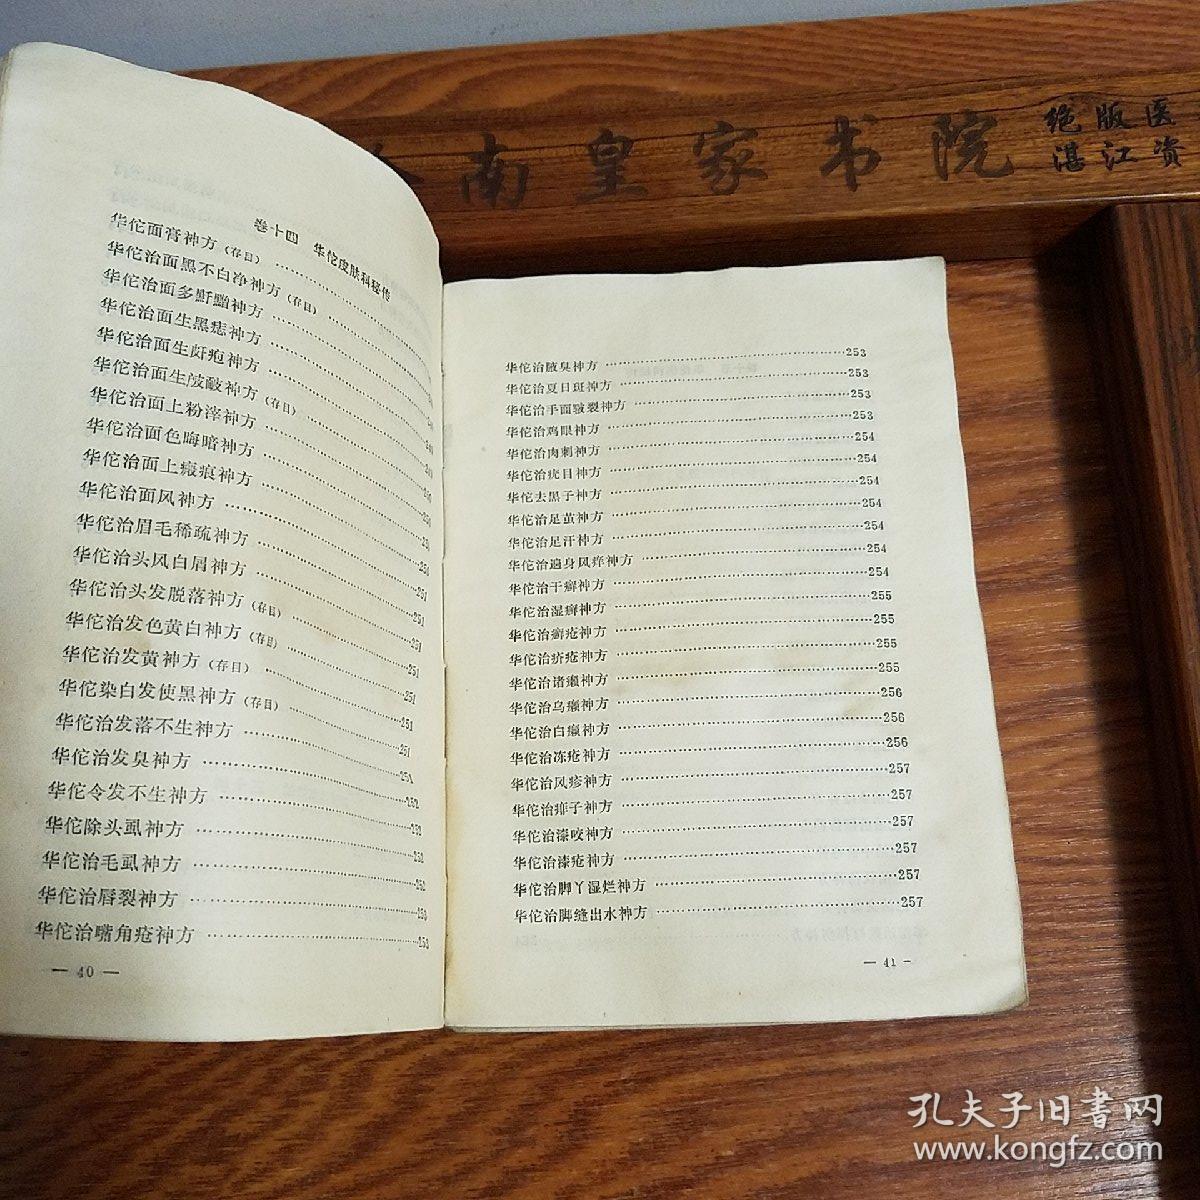 南皇家书院
绝版医
湛江资
卷十四 华佗皮肤科秘传
华佗面膏神方（存目）
华佗治面黑不白净神方（存目）
华佗治面多䵟䵳神方
华佗治面生黑痣神方
华佗治面生皯疱神方
华佗治面生神方（存目）
华佗治面上粉滓神方
华佗治面色晦暗神方
华佗治面上瘢痕神方
华佗治面风神方
华佗治眉毛稀疏神方……251
华佗治头风白屑神方……251
华佗治头发脱落神方（存目）……251
华佗治发色黄白神方（存目）……251
华佗治发黄神方（存目）……251
华佗染白发使黑神方（存目）……251
华佗治发落不生神方……251
华佗治发臭神方……252
华佗令发不生神方……252
华佗除头虱神方……252
华佗治毛虱神方……252
华佗治唇裂神方……253
华佗治嘴角疮神方……253
— 40 —
华佗治腋臭神方……253
华佗治夏日斑神方……253
华佗治手面皲裂神方……253
华佗治鸡眼神方……253
华佗治肉刺神方……254
华佗治疣目神方……254
华佗去黑子神方……254
华佗治足茧神方……254
华佗治足汗神方……254
华佗治遍身风痒神方……254
华佗治干癣神方……254
华佗治湿癣神方……255
华佗治癣疮神方……255
华佗治疥疮神方……255
华佗治诸癞神方……255
华佗治乌癞神方……256
华佗治白癞神方……256
华佗治冻疮神方……256
华佗治风疹神方……257
华佗治痱子神方……257
华佗治漆咬神方……257
华佗治漆疮神方……257
华佗治脚丫湿烂神方……257
华佗治脚缝出水神方……257
— 41 —
孔夫子旧书网
www.kongfz.com